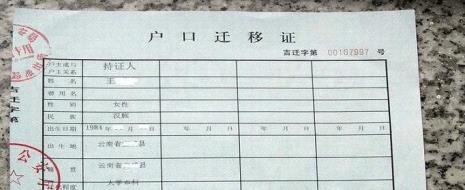 户口迁移证
吉迁字第 00167997 号
户主或与
户主关系 持证人
姓名 王
曾用名
性别 女性
民族 汉族
出生日期 1984 年 月 日 年 月 日 年 月 日 年 月 日
出生地 云南省 县
籍贯 云南省 县
大学本科
吉迁字第